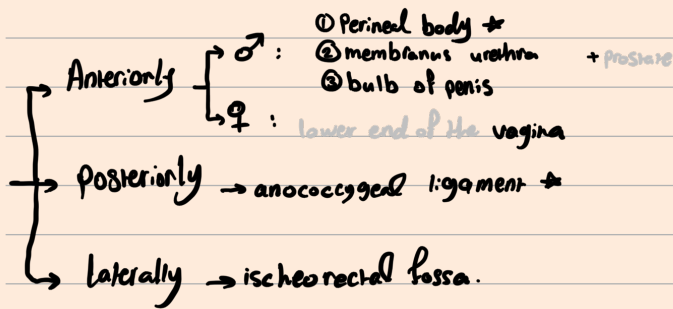 ① Perineal body ★
Anteriorly → ♂ : ② membranus urethra + prostate
③ bulb of penis
♀ : lower end of the vagina
Posteriorly → anococcygeal ligament ★
Laterally → ischeorectal fossa.